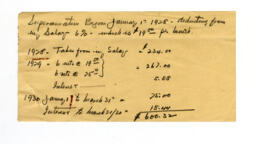 Superannuation Began January 1st 1928 - deducting from
my Salary 6% - which is $19.50 per month.
1928 - Taken from my Salary = 234.00
1929 - 6 mths @ 19.50
6 mths @ 25.00 = 267.00
Interest 5.88
1930 Jany 1st to March 31st 75.00
Interest to March 31/30 18.44
$600.32